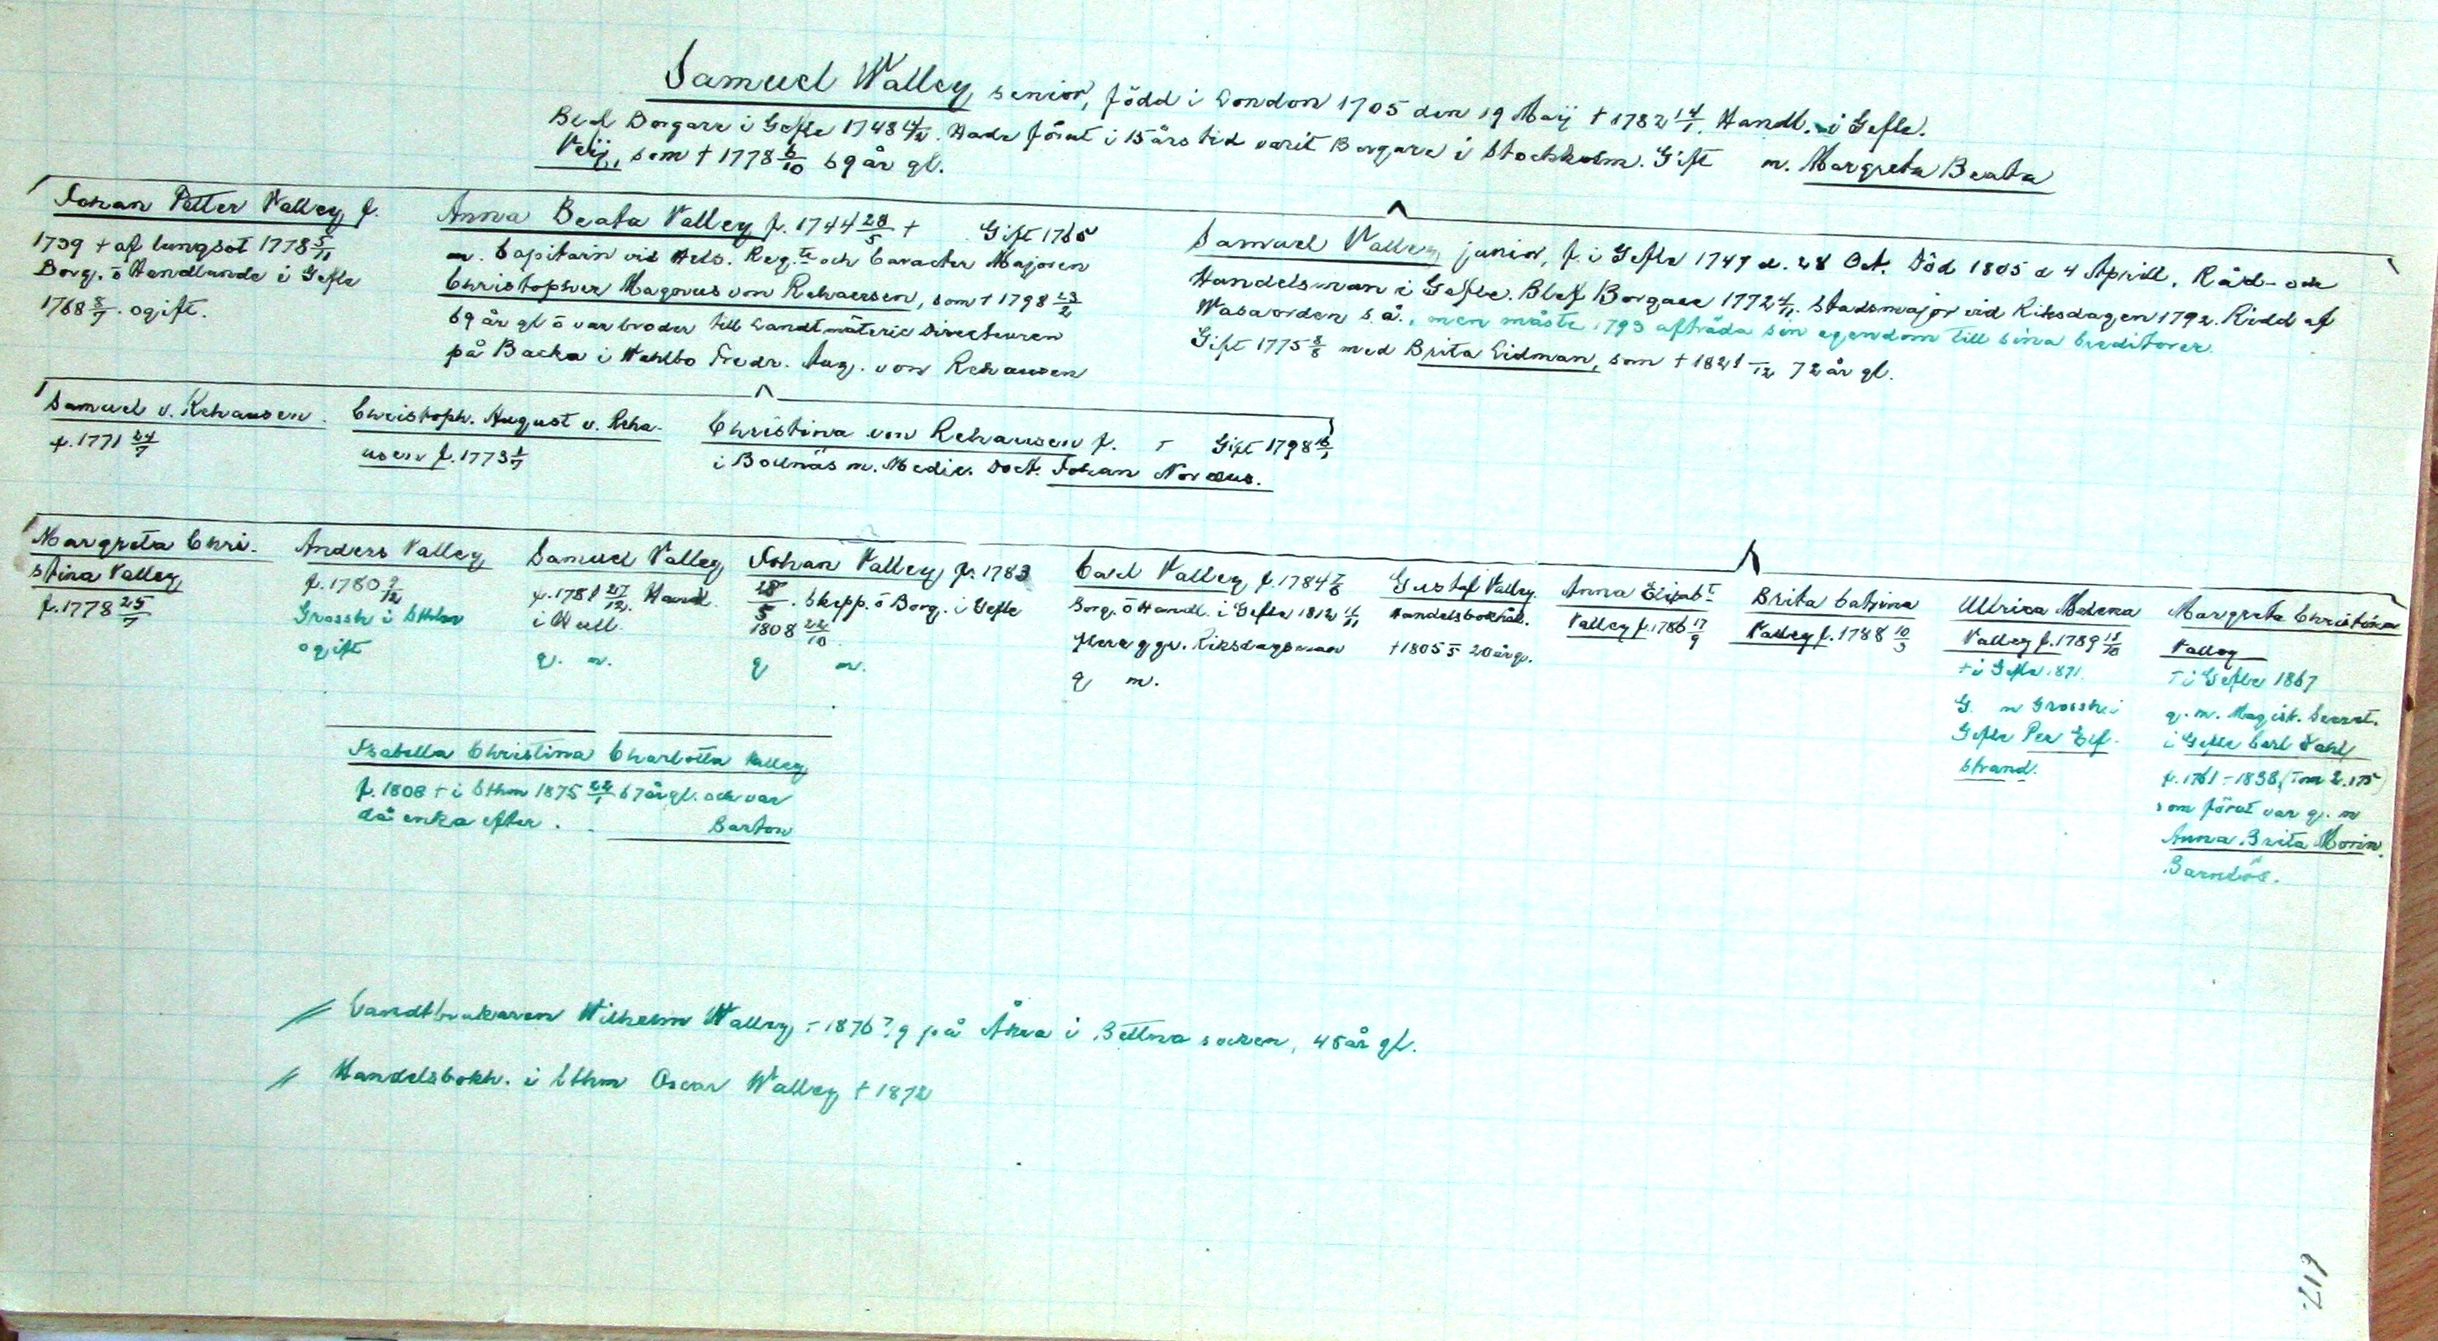 Samuel Walley senior, född i London 1705 den 19 Maij † 1782 14/1. Handl. i Gefle.
Blef Borgare i Gefle 1748. Hade förut i 15 års tid varit Borgare i Stockholm. Gift m. Margreta Beata
som † 1778 6/10 69 år gl.
Johan Petter Valley f.
1739 † af lungsot 1778 5/11
Borg. o Handlande i Gefle
1768 8/7. ogift.
Anna Beata Valley f. 1744 28/5 † Gift 1765
m. Capitain vid Hels. Reg.te och Caracter Majoren
Christopher Magnus von Rehausen, som † 1798 23/2
69 år gl o var broder till Landtmäterie Directeuren
på Backa i Wahlbo Fredr. Aug. von Rehausen
Samuel Valley junior, f. i Gefle 1747 d. 28 Oct. Död 1805 d 4 Aprill. Råd- och
Handelsman i Gefle. Blef Borgare 1772 4/11. Stadsmajor vid Riksdagen 1792. Ridd af
Wasaorden s. å., men måste 1793 afträda sin egendom till sina Creditorer
Gift 1775 8/8 med Brita Lidman, som † 1821 -/12 72 år gl.
Samuel v. Rehausen.
f. 1771 24/7
Christoph. August v. Reha-
usen f. 1773 1/7
Christina von Rehausen f. † Gift 1798
i Bollnäs m. Medic. Doct. Johan Noræus.
Margreta Chri-
stina Valley
f. 1778 25/7
Anders Valley
f. 1780 9/12
Grossh i Sthlm
ogift
Samuel Valley
f. 1781 27/12. Handl.
i Hull
g. m.
Johan Valley f. 1783
28/5. Skepp. o Borg. i Gefle
1808 22/10.
g m.
Carl Valley f. 1784 7/8
Borg. o Handl. i Gefle 1812
flere ggr. Riksdagsman
g m.
Gustaf Valley.
Handelsbokhål.
† 1805 20 år g.
Anna Elisabt
Valley f. 1786 17/9
Brita Catrina
Valley f. 1788 10/3
Ullrica Malena
Valley f. 1789 15/10
† i Gefle 1871.
G. m Grossh. i
Gefle Per Elf-
strand.
Margreta Christina
Valley
† i Gefle 1867
g. m. Magist. Secret.
i Gefle Carl Vahl
f. 1761 - 1838, (Tom 2. 175)
som förut var g. m
Anna Brita Morin.
Barnlös.
Isabella Christina Charlotta Valley
f. 1808 † i Sthm 1875 22/1 67 år gl. och var
då enka efter . . Barton
// Landtbrukaren Wilhelm Walley † 1876 7/9 på Åkra i Bettna socken, 45 år gl.
// Handelsbokh. i Sthm Oscar Walley † 1872
217.